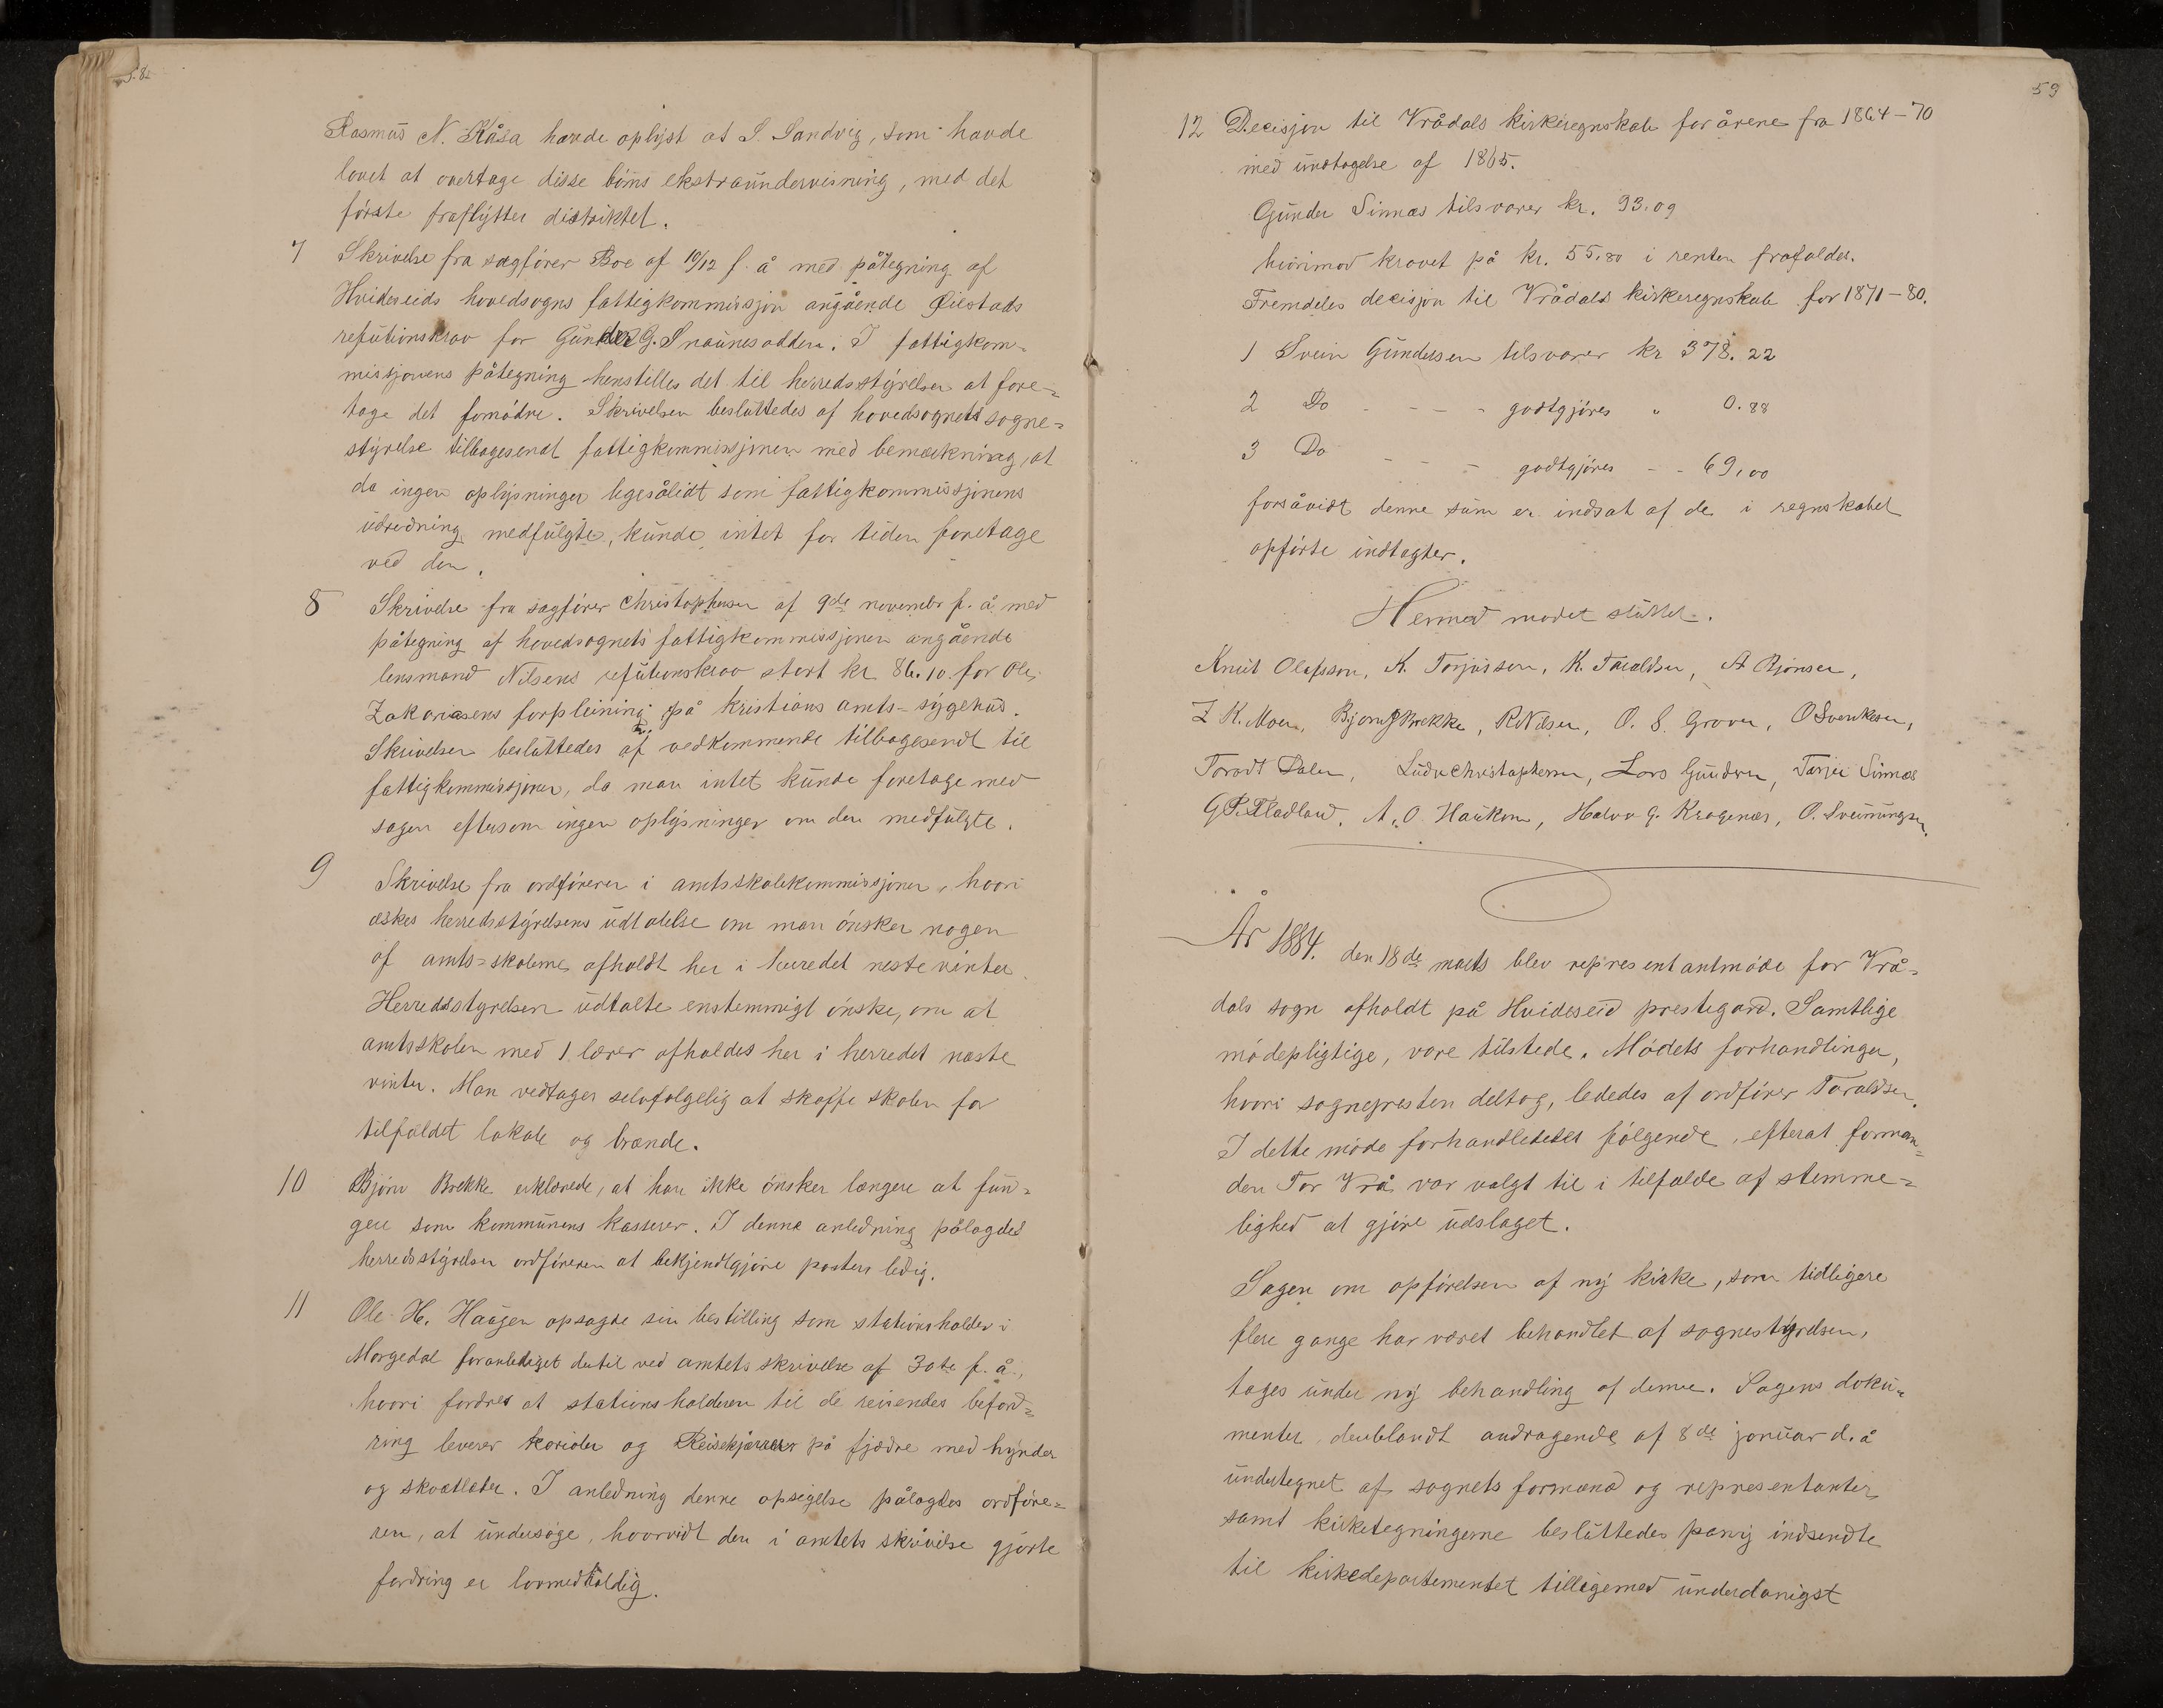 58
Rasmus N. Kåsa havde oplyst at S. Sandvig, som havde
lovet at overtage disse börns ekstraundervisning, med det
förste fraflytter distriktet.
7 Skrivelse fra sagförer Boe af 10/12 f. å med påtegning af
Hvideseids hovedsogns fattigkommissjon angående Qvilstads
refutionskrav for Gunder G. Snaunesodden. I fattigkom-
missjonens påtegning henstilles det til herredsstyrelsen at fore-
tage det fornödne. Skrivelsen besluttedes af hovedsognets sogne-
styrelse tilbagesendt fattigkommissjonen med bemærkning, at
da ingen oplysninger ligesålidt som fattigkommissjonens
udredning medfulgte, kunde intet for tiden foretage
ved den.
8 Skrivelse fra sagförer Christophersen af 9de novembr f. å med
påtegning af hovedsognets fattigkommissjonen angående
lensmand Nilsens refutionskrav stort kr. 86.10 for Ole
Zakariasens forpleining på kristians amts-sygehus.
Skrivelsen besluttedes af vedkommende tilbagesendt til
fattigkommissjonen, da man intet kunde foretage med
sagen eftersom ingen oplysninger om den medfulgte.
9 Skrivelse fra ordföreren i amtsskolekommissjonen, hvori
æskes herredsstyrelsens udtalelse om man önsker nogen
af amts-skolerne afholdt her i herredet neste vinter.
Herredsstyrelsen udtalte enstemmigt önske, om at
amtsskolen med 1 lærer afholdes her i herredet næste
vinter. Man vedtager selvfølgelig at skaffe skolen for
tilfældet lokale og brænde.
10 Björn Brekke erklærede, at han ikke önsker længere at fun-
gere som kommunens kasserer. I denne anledning pålagdes
herredsstyrelsen ordföreren at bekjendtgjöre posten ledig.
11 Ole H. Haugen opsagde sin bestilling som stationsholder i
Morgedal foranlediget dertil ved amtets skrivelse af 30te f. å.,
hvori fordres at stationsholderen til de reisendes beford-
ring leverer karioler og Reisekjærrer på fjædre med hynder
og skvætlæder. I anledning denne opsigelse pålagdes ordföre-
ren, at undersöge, hvorvidt den i amtets skrivelse gjorte
fordring er lovmedholdig.
59
12 Decisjon til Vrådals kirkeregnskab for årene fra 1864-70
med undtagelse af 1865.
Gunder Sinnæs tilsvarer kr. 93.09
hvorimod kravet på kr. 55.80 i renten frafaldes.
Fremdeles decisjon til Vrådals kirkeregnskab for 1871-80.
1 Svein Gundersen tilsvarer kr 378.22
2 Do - - - - godtgjöres " 0.88
3 Do - - - godtgjöres - - 69,00
forsåvidt denne sum er indsat af de i regnskabet
opförte indtægter.
Hermed mödet sluttet.
Knut Olafsson, K. Torjussen, K. Taraldsen, A Björnsen,
Z K. Moen, Bjørn Brekke, R Nilsen, O. S. Groven, O Svenkesen,
Taradt Dalen, Ludv Christophersen, Lars Gundersen, Tarjei Sinnes
G P. Fladland, A. O Haukom, Halvor G. Kragenæs, O. Sveinungsen.
År 1884. den 18de marts blev representantmöde for Vrå-
dals sogn afholdt på Hvideseid prestegard. Samtlige
mödepligtige, vare tilstede. Mödets forhandlinger,
hvori sognepresten deltog, lededes af ordförer Taraldsen.
I dette möde forhandledes følgende, efterat forman-
den Tor Vrå var valgt til i tilfælde af stemme-
lighed at gjöre udslaget.
Sagen om opförelsen af ny kirke, som tidligere
flere gange har været behandlet af sognestyrelsen,
tages under ny behandling af denne. Sagens doku-
menter deriblandt andragende af 8de januar d. å
undertegnet af sognets formænd og representanter
samt kirketegningerne besluttedes påny indsendte
til kirkedepartementet tilligemed underdanigst